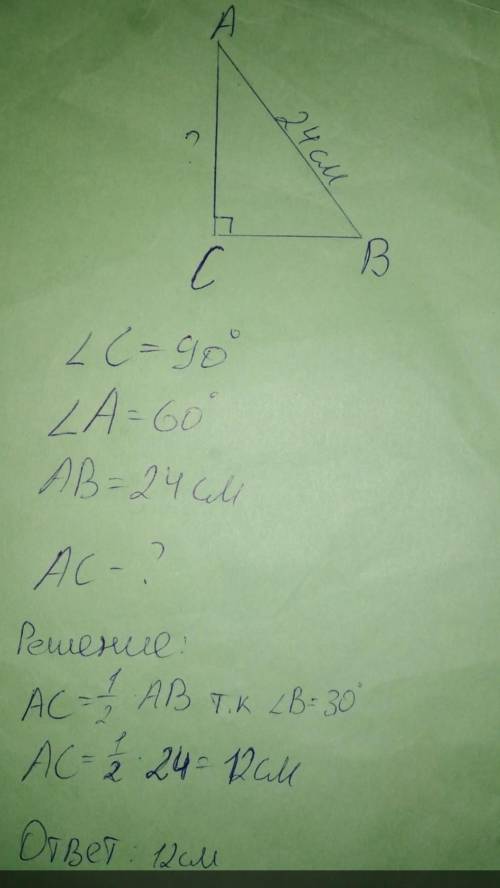 A
?
24см
C
B
∠C=90°
∠A=60°
AB=24см
AC-?
Решение:
AC=1/2·AB т.к ∠B=30°
AC=1/2·24=12см
Ответ: 12см